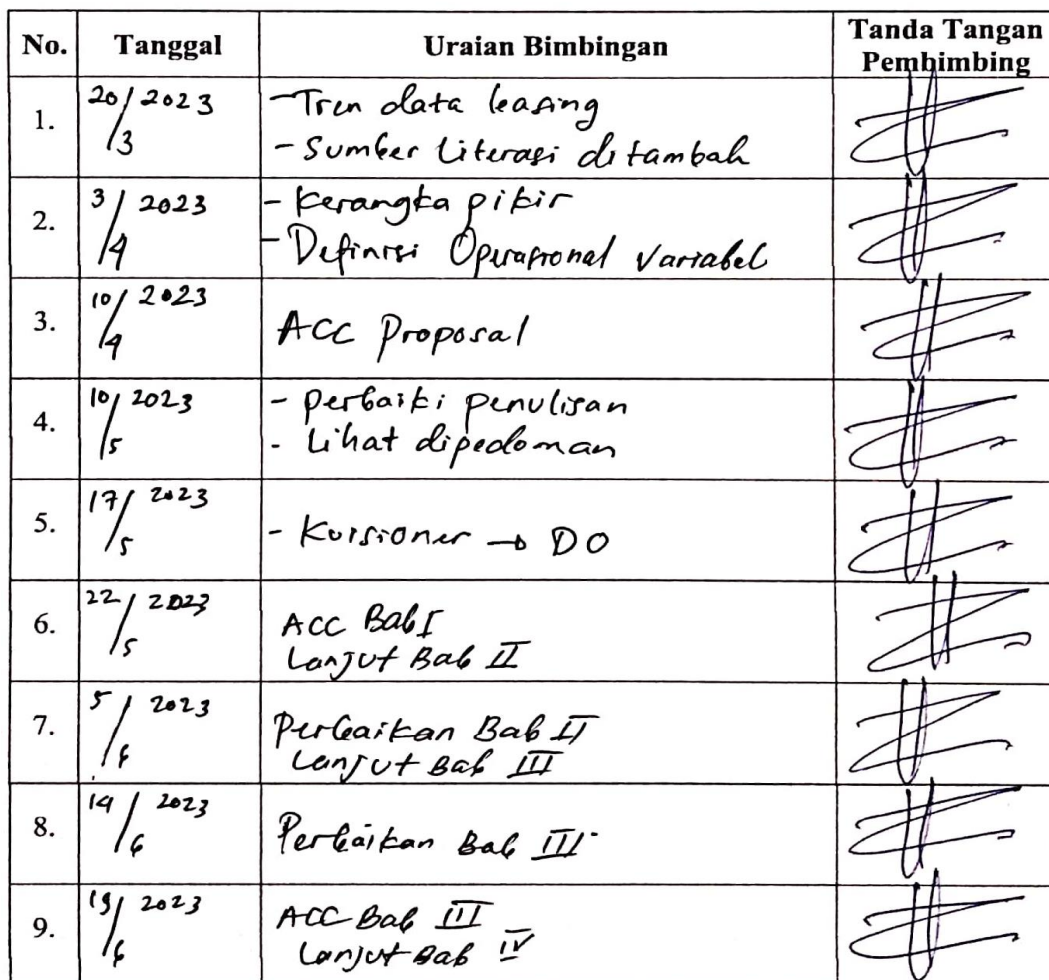 No. Tanggal Uraian Bimbingan Tanda Tangan Pembimbing
1. 20/3 2023 - Tren data leasing
- Sumber Literasi ditambah
2. 3/4 2023 - Kerangka pikir
- Definisi Operasional Variabel
3. 10/4 2023 ACC Proposal
4. 10/5 2023 - perbaiki penulisan
- Lihat dipedoman
5. 17/5 2023 - Kuisioner → DO
6. 22/5 2023 ACC Bab I
Lanjut Bab II
7. 5/6 2023 Perbaikan Bab II
Lanjut Bab III
8. 14/6 2023 Perbaikan Bab III
9. 19/6 2023 ACC Bab III
Lanjut Bab IV